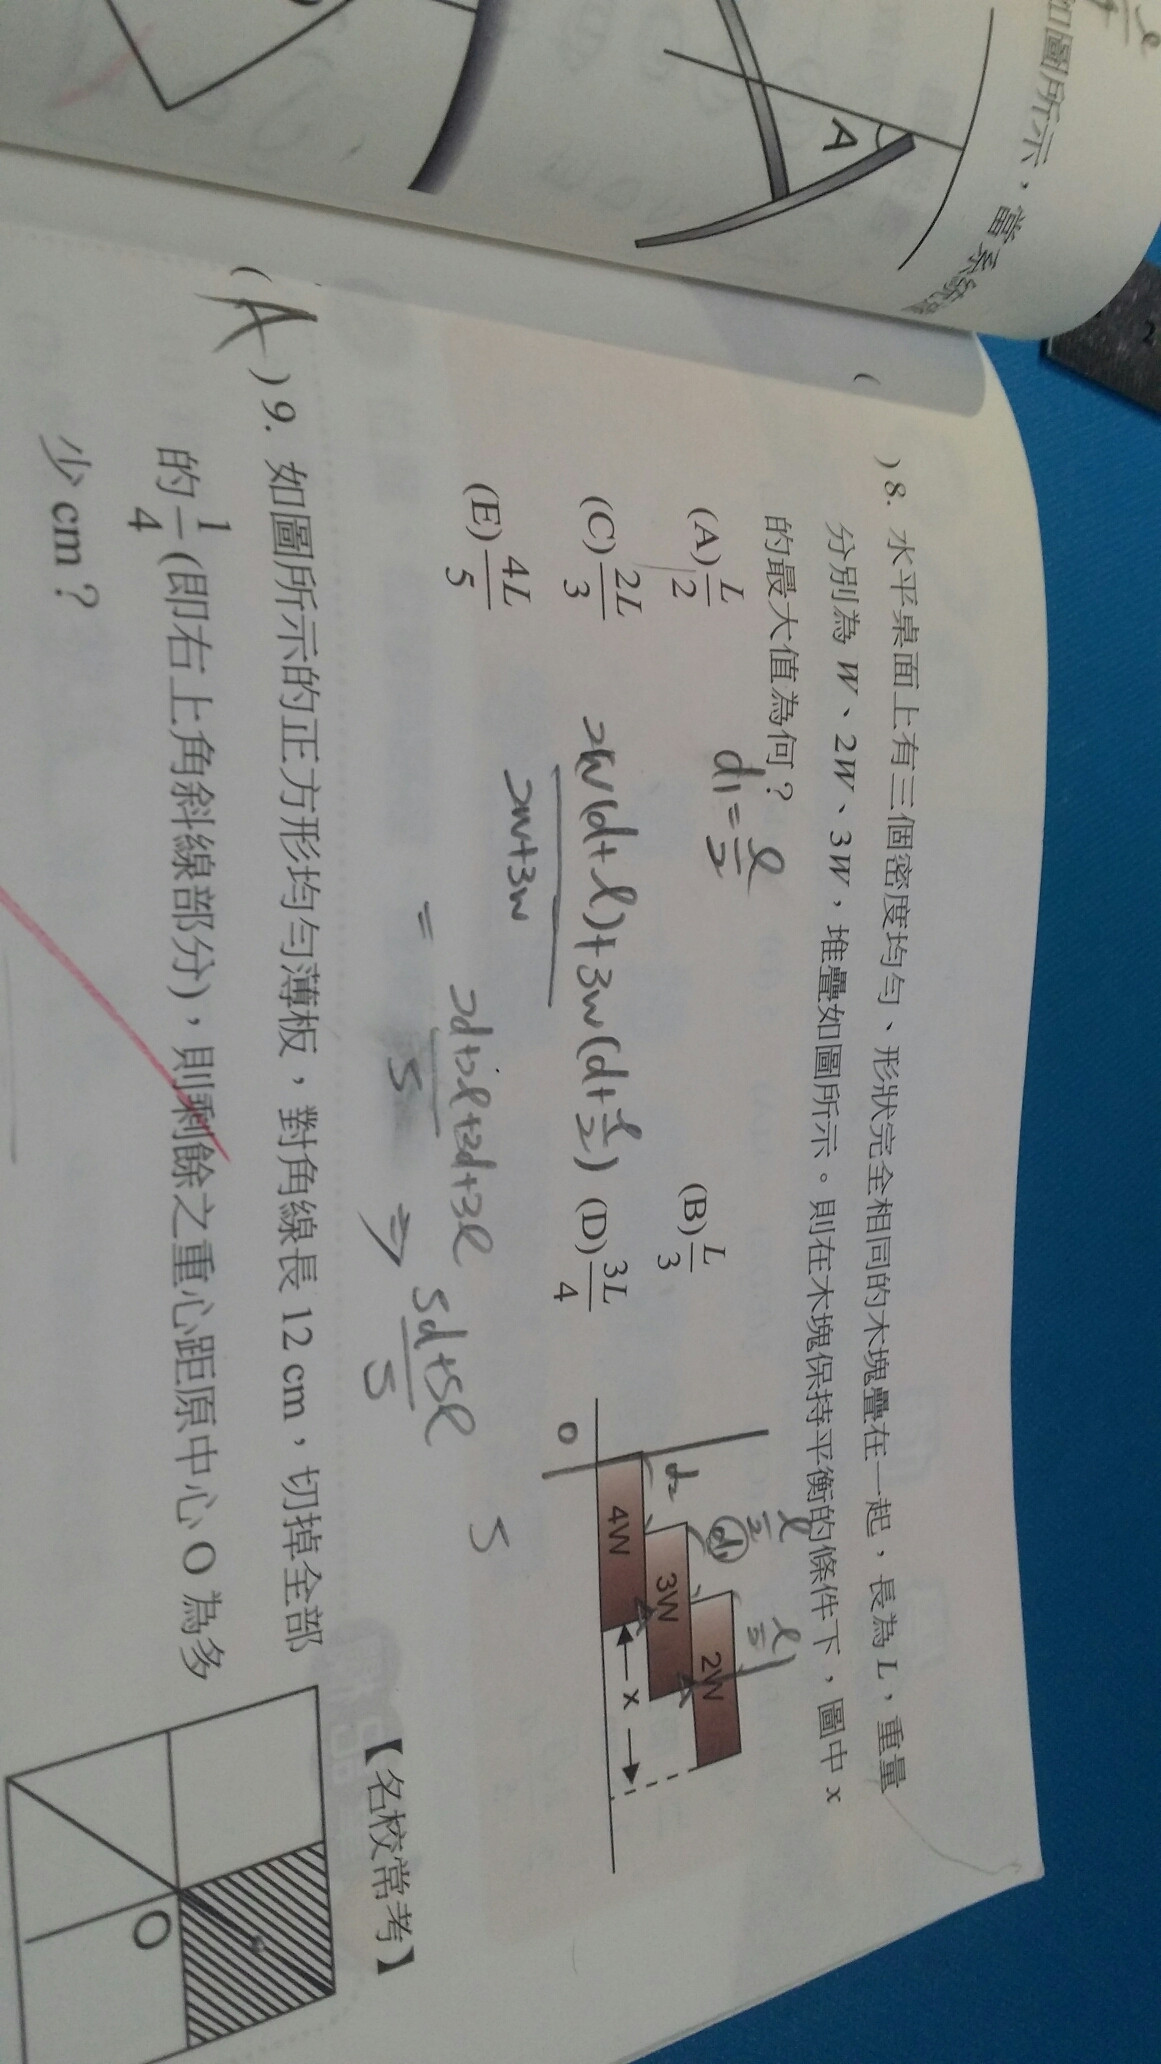 如圖所示,當系統
A
( )8. 水平桌面上有三個密度均勻、形狀完全相同的木塊疊在一起,長為 L,重量
分別為 W、2W、3W,堆疊如圖所示。則在木塊保持平衡的條件下,圖中 x
的最大值為何?
(A) L/2 (B) L/3
(C) 2L/3 (D) 3L/4
(E) 4L/5
d1 = l/2
2W(d+l)+3W(d+l/2)
2W+3W
= 2d+2l+3d+3l / 5
⇒ 5d+5l / 5
5
0
d2
d1
l/2
2W
3W
4W
x
【名校常考】
(A)9. 如圖所示的正方形均勻薄板,對角線長 12 cm,切掉全部
的 1/4 (即右上角斜線部分),則剩餘之重心距原中心 O 為多
少 cm?
O